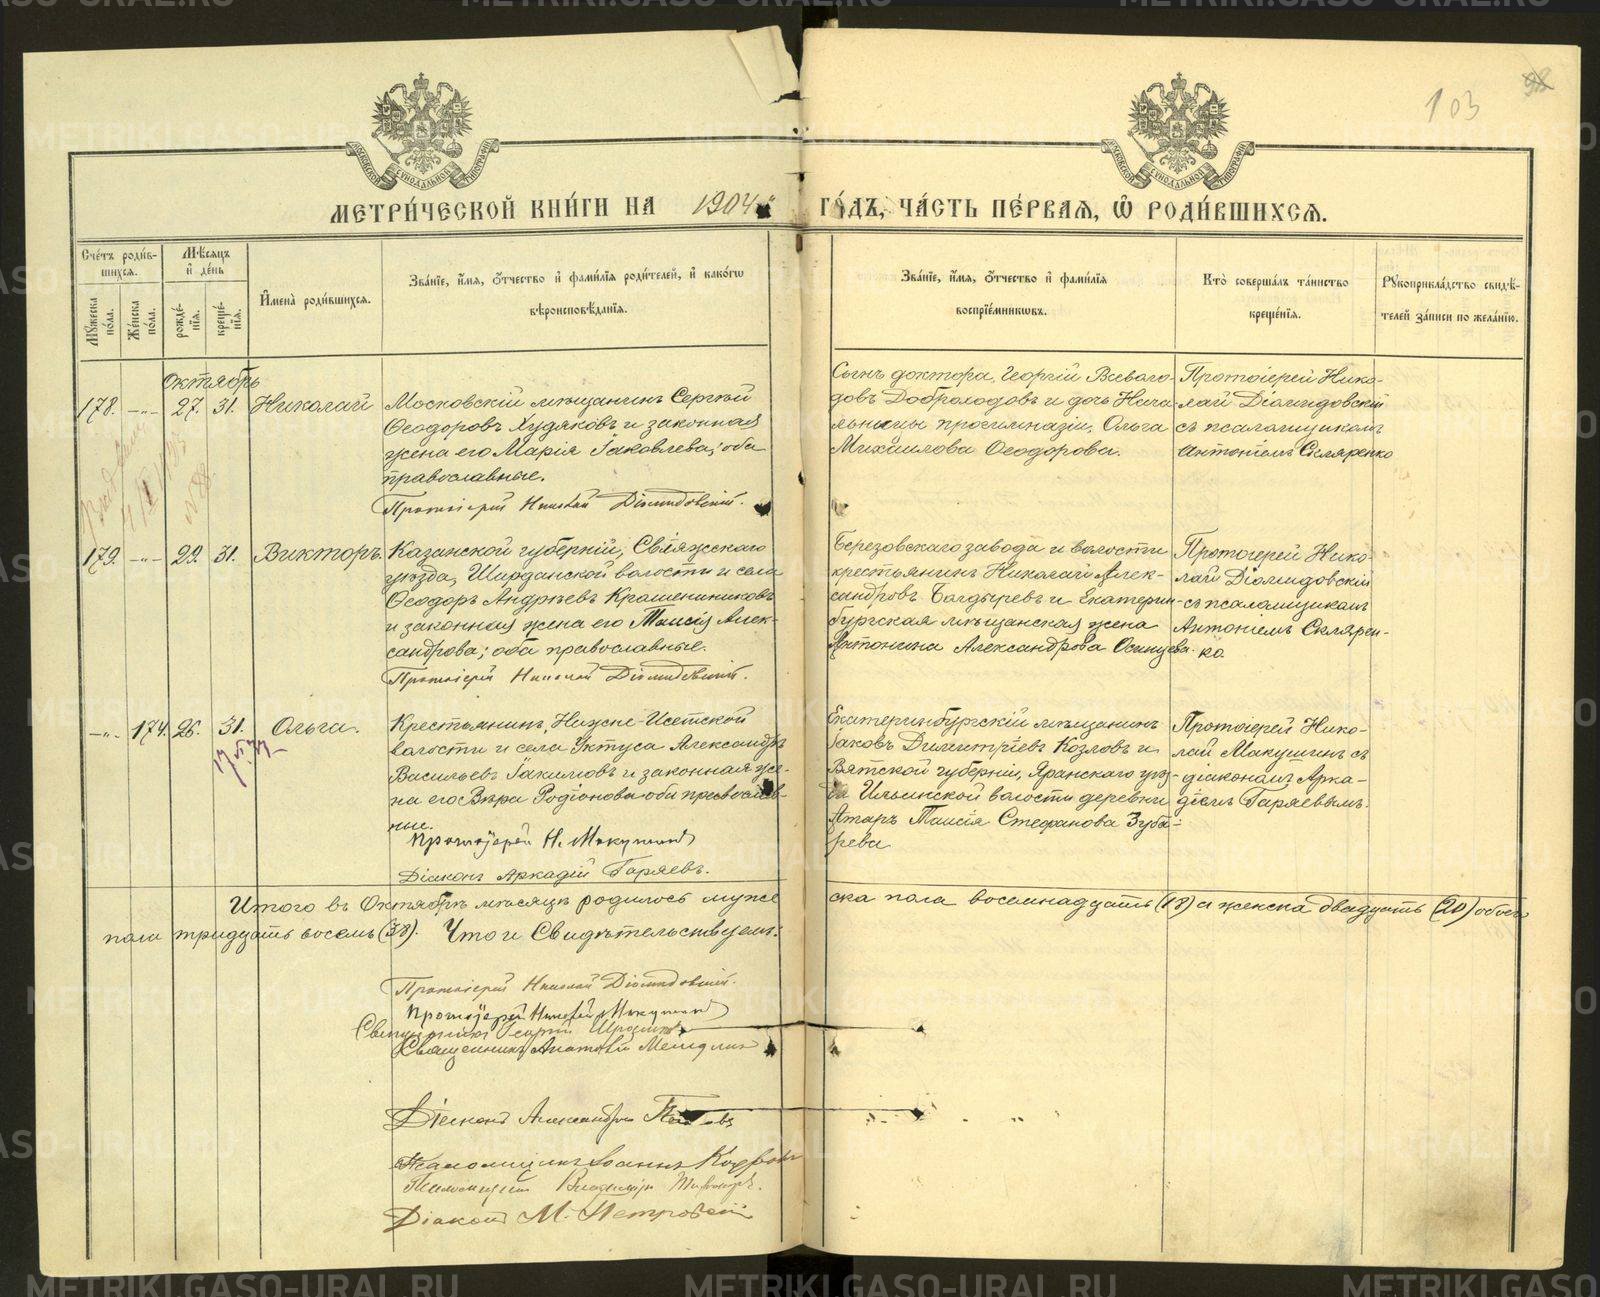 103
98
МЕТРИ́ЧЕСКОЙ КНИ́ГИ НА 1904й ГО́ДЪ, ЧА́СТЬ ПЕ́РВАЯ, Ѿ РОДИ́ВШИХСЯ.
Сче́тъ роди́вшихся.
Му́жеска по́ла.
Же́нска по́ла.
Мѣ́сяцъ и де́нь
рожде́нїя.
креще́нїя.
Имена̀ роди́вшихся.
Зва́нїе, и́мя, о́тчество и фами́лїя роди́телей, и како́гѡ
вѣроисповѣ́данїя.
Зва́нїе, и́мя, о́тчество и фами́лїя
воспрїе́мниковъ.
Кто̀ соверша́лъ та́инство
креще́нїя.
Рукоприкла́дство свидѣ́-
телей за́писи по жела́нїю.
Октябрь
178. -„- 27. 31. Николай
Московскій мѣщанинъ Сергѣй
Ѳеодоровъ Худяковъ и законная
жена его Марія Іаковлева; оба
православные.
Протоіерей Николай Діомидовскій.
Сынъ доктора, Георгій Всеволо-
довъ Доброходовъ и дочь Нача-
льницы прогимназіи, Ольга
Михаилова Ѳеодорова.
Протоіерей Нико-
лай Діомидовскій
съ псаломщикомъ
Антоніемъ Скляренко
179. -„- 29. 31. Викторъ.
Казанской губерніи, Свіяжскаго
уѣзда, Ширданской волости и села
Ѳеодоръ Андреевъ Крашенинниковъ
и законная жена его Таисія Алек-
сандрова; оба православные.
Протоіерей Николай Діомидовскій.
Березовскаго завода и волости
крестьянинъ Николай Алек-
сандровъ Болдыревъ и Екатерин-
бургская мѣщанская жена
Антонина Александрова Осинцева.
Протоіерей Нико-
лай Діомидовскій
съ псаломщикомъ
Антоніемъ Склярен-
ко.
-„- 174. 26. 31. Ольга.
Крестьянинъ, Нижне-Исетской
волости и села Уктуса Александръ
Васильевъ Іакимовъ и законная же-
на его Вѣра Родіонова оба православ-
ные.
Протоіерей Н. Макушинъ
Діаконъ Аркадій Гаряевъ.
Екатеринбургскій мѣщанинъ
Іаковъ Димитріевъ Козловъ и
Вятской губерніи, Яранскаго уѣз-
да Ильинской волости деревни
Атаръ Таисія Стефанова Зуба-
рева
Протоіерей Нико-
лай Макушинъ съ
діакономъ Арка-
діемъ Гаряевымъ.
Итого въ Октябрѣ мѣсяцѣ родилось муже
ска пола восемнадцать (18) а женска двадцать (20) обоего
пола тридцать восемь (38). Что и Свидѣтельствуемъ:
Протоіерей Николай Діомидовскій.
Протоіерей Николай Макушинъ
Священникъ Георгій
Священникъ Анатолій
Діаконъ Александръ
Псаломщикъ Іоаннъ
Псаломщикъ Владиміръ
Діаконъ М. Петровскій